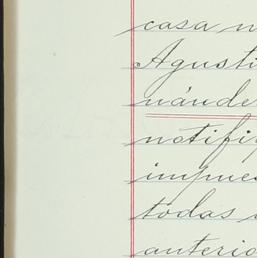 casa n
Agusti
nánde
notifiq
impues
todas
anterio